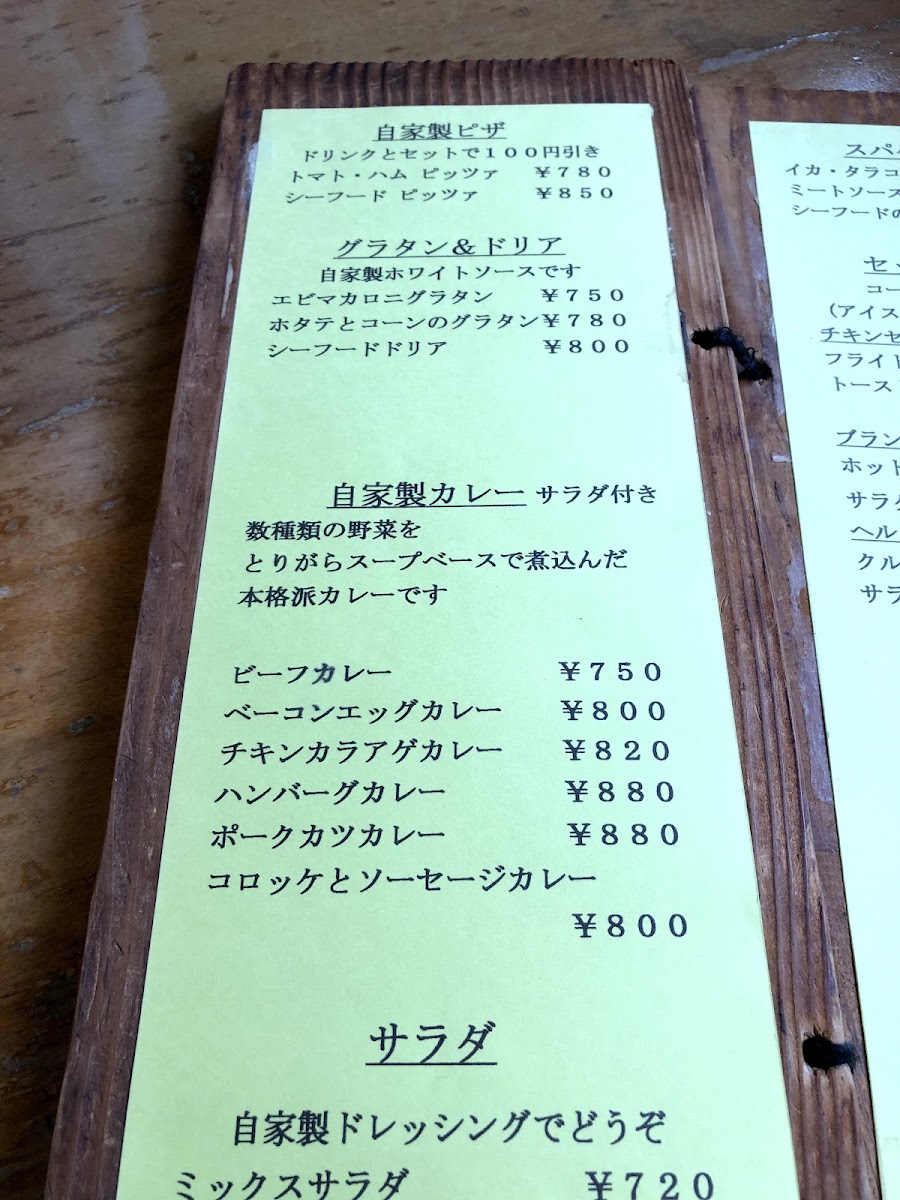 自家製ピザ
ドリンクとセットで１００円引き
トマト・ハム ピッツァ ￥７８０
シーフード ピッツァ ￥８５０
グラタン＆ドリア
自家製ホワイトソースです
エビマカロニグラタン ￥７５０
ホタテとコーンのグラタン￥７８０
シーフードドリア ￥８００
自家製カレー サラダ付き
数種類の野菜を
とりがらスープベースで煮込んだ
本格派カレーです
ビーフカレー ￥７５０
ベーコンエッグカレー ￥８００
チキンカラアゲカレー ￥８２０
ハンバーグカレー ￥８８０
ポークカツカレー ￥８８０
コロッケとソーセージカレー
￥８００
サラダ
自家製ドレッシングでどうぞ
ミックスサラダ ￥７２０
スパ
イカ・タラコ
ミートソース
シーフードの
セッ
コー
(アイス
チキンセ
フライド
トース
ブラン
ホット
サラダ
ヘル
クル
サラ